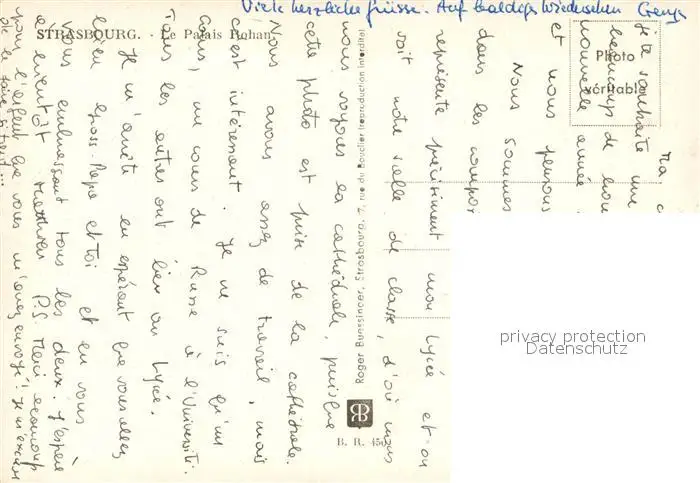 Viele herzliche Grüsse. Auf baldiges Wiedersehen
STRASBOURG. - Le Palais Rohan
Photo
véritable
Roger Bunssincer, Strasbourg, 7, rue du Bouclier (reproduction interdite)
B. R. 450
privacy protection
Datenschutz
Ma
Je te souhaite une
beaucoup de
nouvelle année
et nous pensons
Nous sommes
dans les compo
représente précisément mon Lycée et on
voit notre salle de classe, d'où nous
nous voyons la cathédrale, puisque
cette photo est prise de la cathédrale.
Nous avons assez de travail, mais
c'est intéressant. Je ne suis qu'un
cours, un cours de Russe à l'Université.
Tous les autres ont lieu au Lycée.
Je m'arrête en espérant que vous allez
bien Gross-Papa et toi et en vous
embrassant tous les deux. J'espère
à bientôt Matthieu P.S. Merci beaucoup
pour l'enfant que vous m'avez envoyé! Je m'excuse
de le faire si tard...